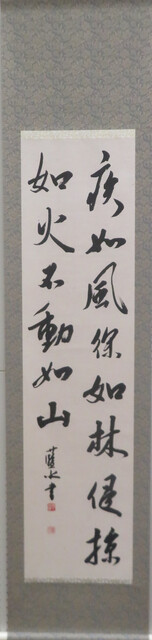 疾如風徐如林侵掠
如火不動如山
藍水書